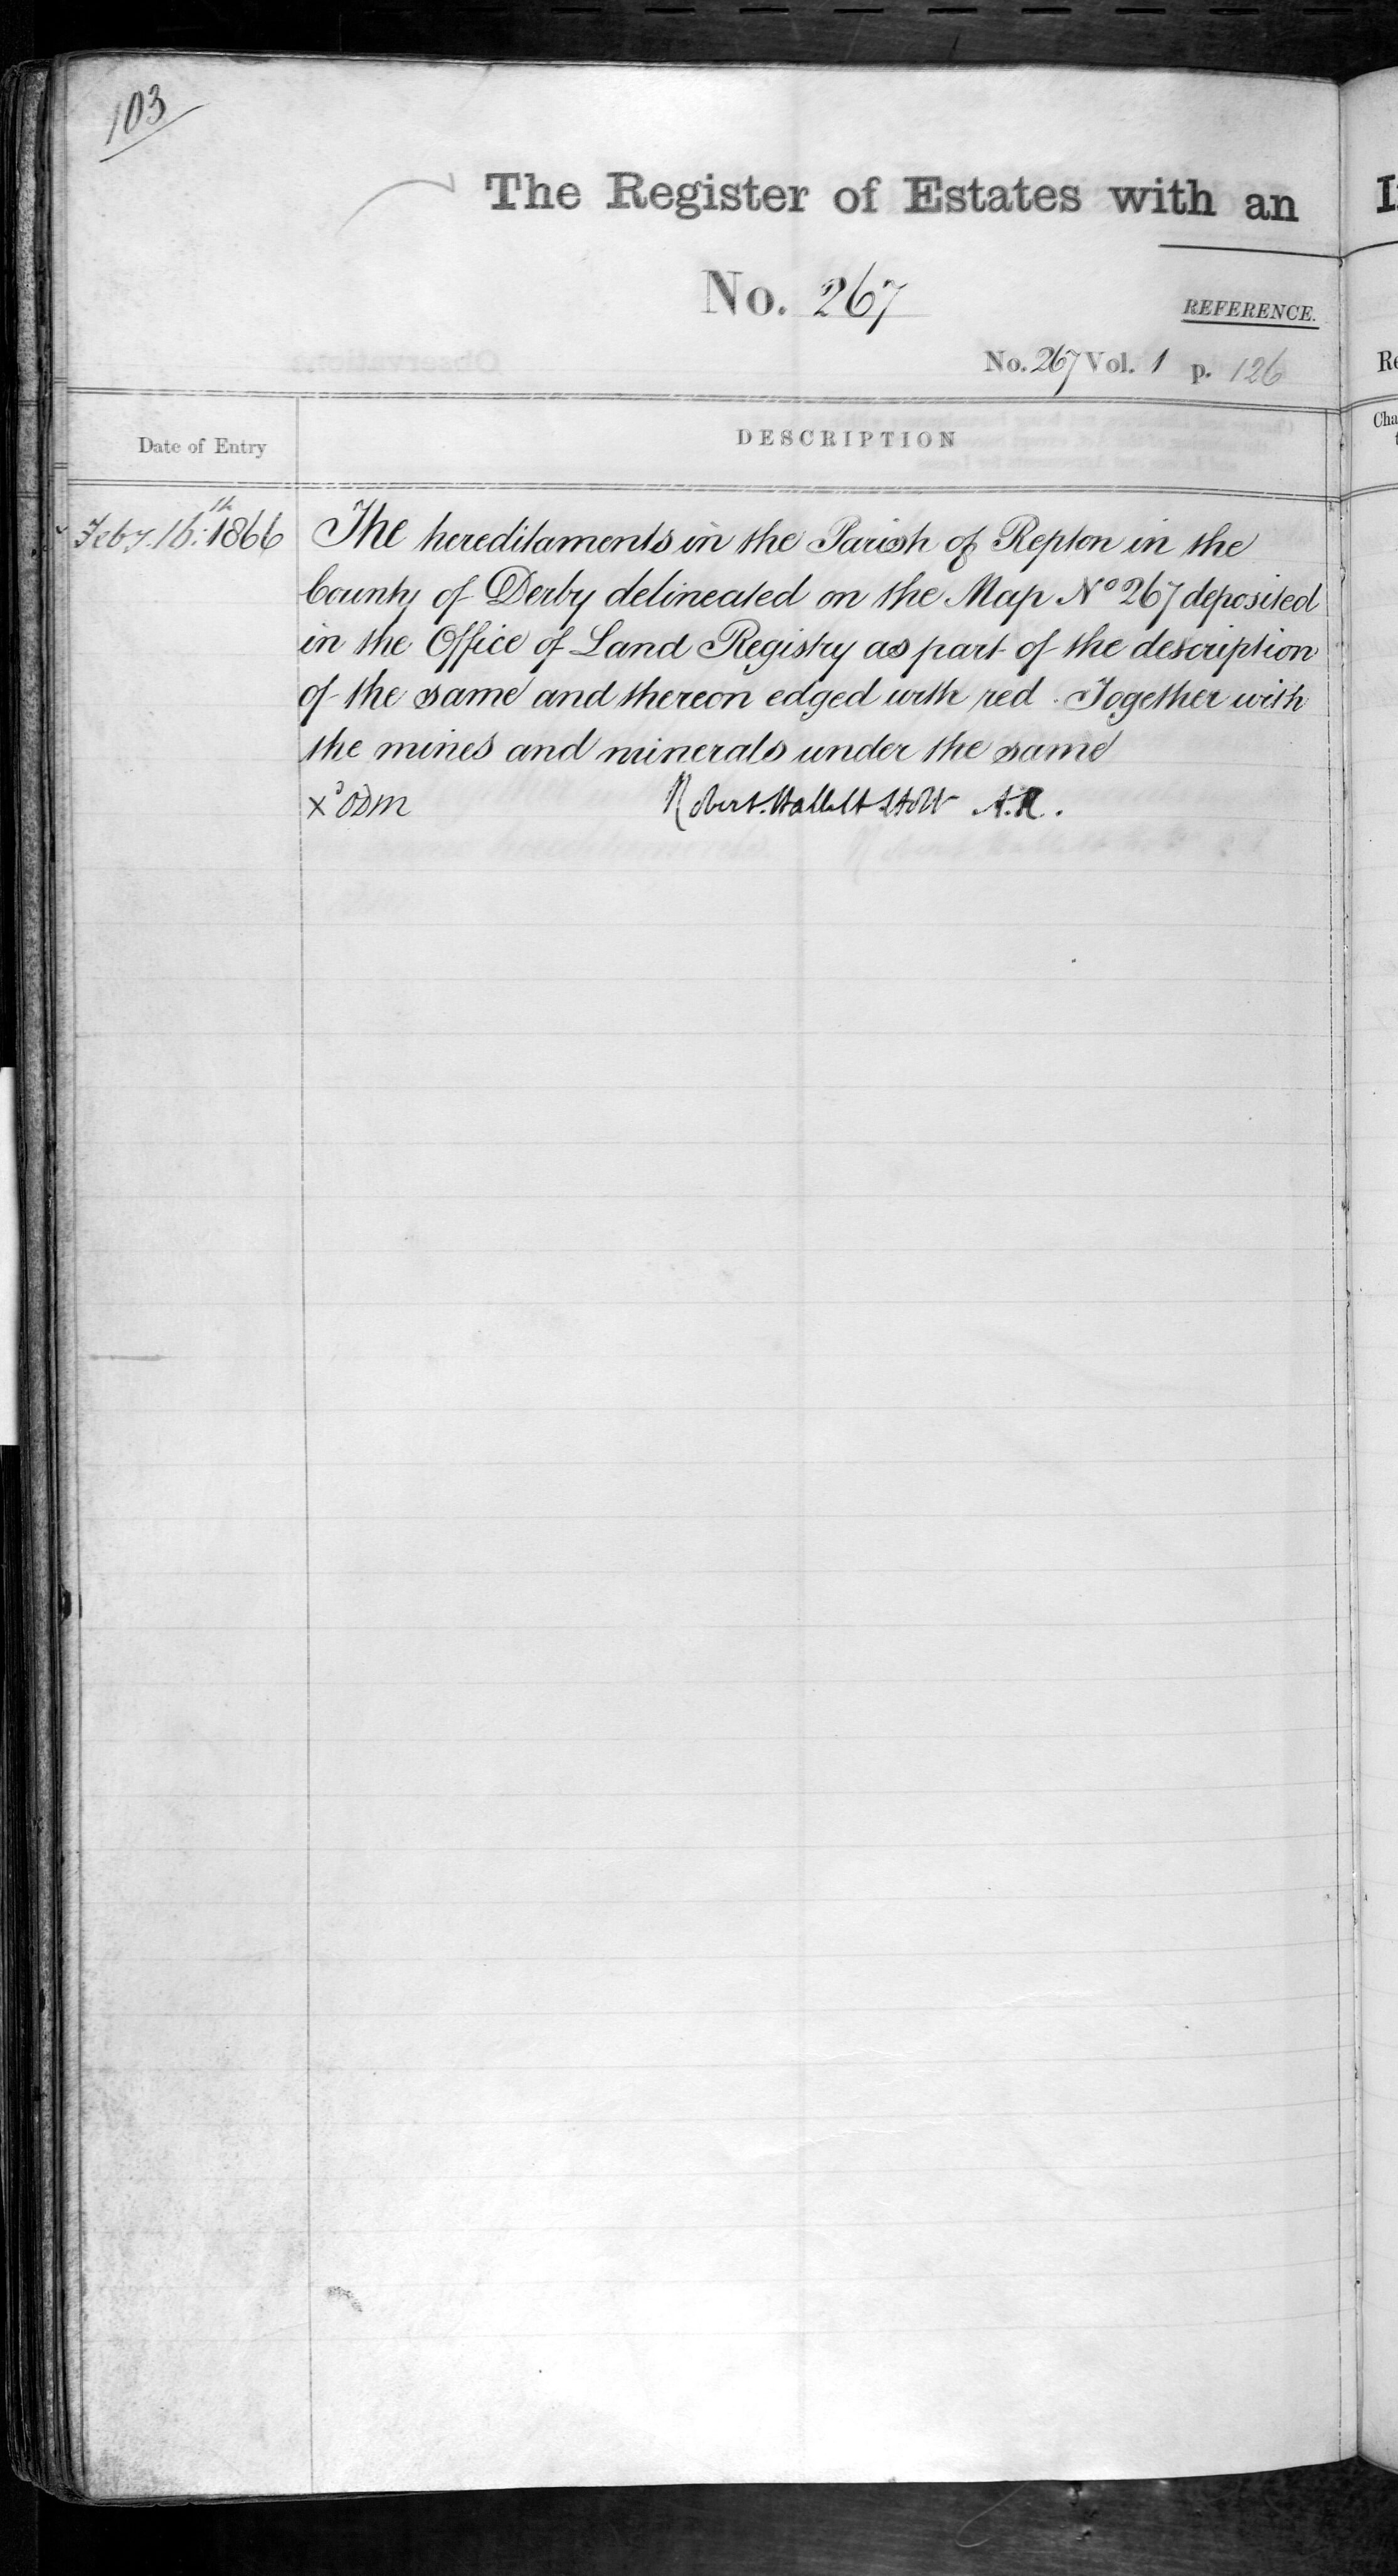 103
The Register of Estates with an
No. 267
REFERENCE.
No. 267 Vol. 1 p. 126
Date of Entry
DESCRIPTION
Feby. 16th 1866
The hereditaments in the Parish of Repton in the
County of Derby delineated on the Map No 267 deposited
in the Office of Land Registry as part of the description
of the same and thereon edged with red. Together with
the mines and minerals under the same
Robert Hallett Holt A.R.